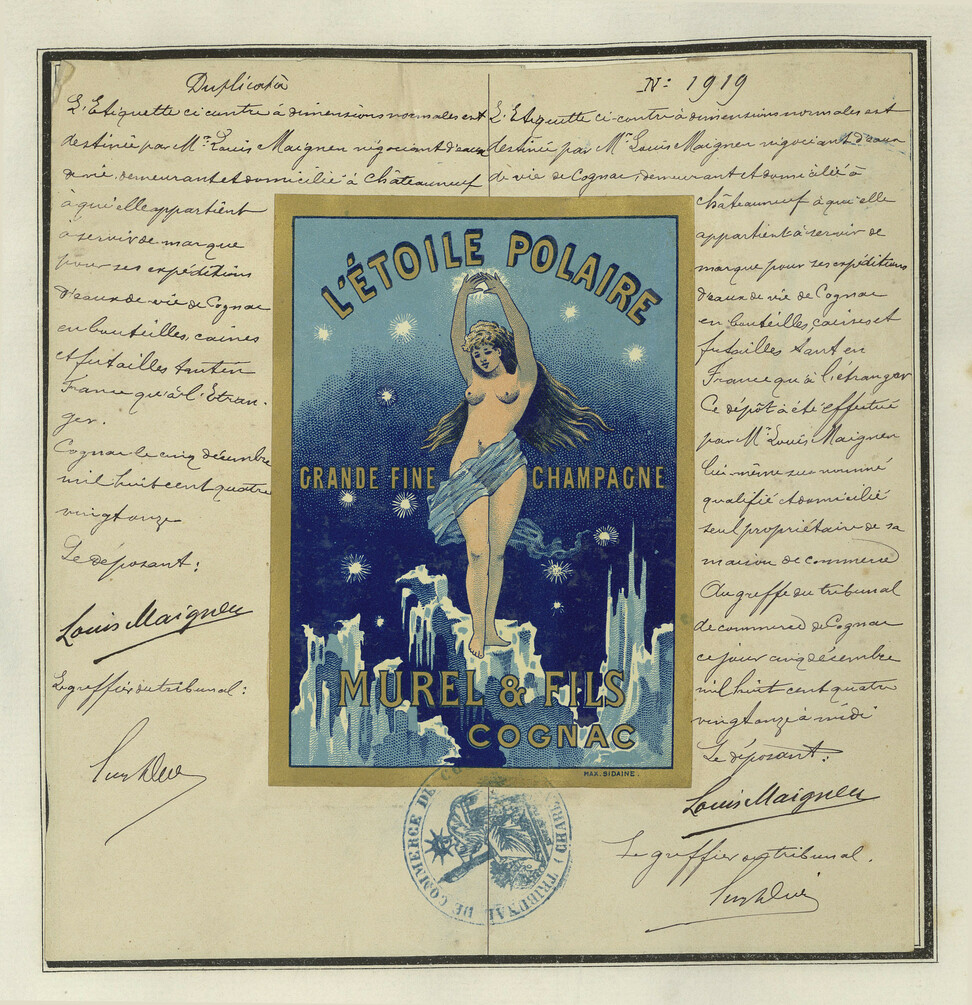 Duplicata
L'Etiquette ci contre à dimensions normales est
destinée par Mr. Louis Maignen négociant d'eaux
de vie, demeurant et domicilié à Châteauneuf
à qui elle appartient
à servir de marque
pour ses expéditions
d'eaux de vie de Cognac
en bouteilles, caisses
et futailles tant en
France qu'à l'Etran-
ger.
Cognac le cinq décembre
mil huit cent quatre
vingt onze
Le déposant:
Louis Maignen
Le greffier du tribunal:
L'ÉTOILE POLAIRE
GRANDE FINE CHAMPAGNE
MUREL & FILS
COGNAC
MAX. SIDAINE.
TRIBUNAL DE COMMERCE DE
No: 1919
L'Etiquette ci-contre à dimensions normales est
destinée par Mr Louis Maignen négociant d'eaux
de vie de Cognac, demeurant et domicilié à
Châteauneuf à qui elle
appartient à servir de
marque pour ses expéditions
d'eaux de vie de Cognac
en bouteilles, caisses et
futailles tant en
France qu'à l'étranger
Ce dépôt a été effectué
par Mr. Louis Maignen
lui-même sus nommé
qualifié et domicilié
seul propriétaire de sa
maison de commerce
Au greffe du tribunal
de commerce de Cognac
ce jour cinq décembre
mil huit cent quatre
vingt onze à midi
Le déposant:
Louis Maignen
Le greffier du tribunal.